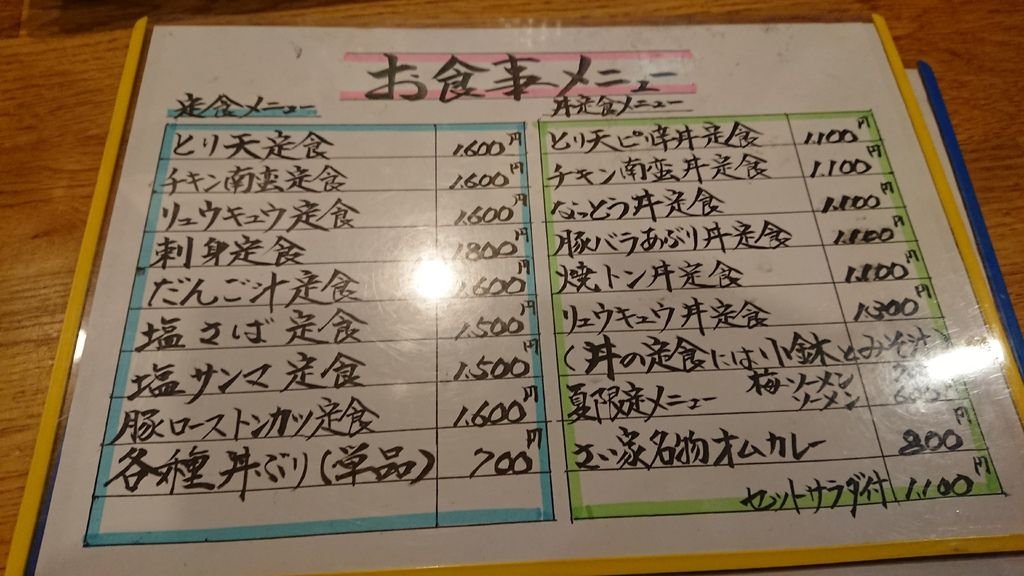 お食事メニュー
定食メニュー
とり天定食 1.600円
チキン南蛮定食 1.600円
リュウキュウ定食 1.600円
刺身定食 1.800円
だんご汁定食 1.600円
塩さば定食 1.500円
塩サンマ定食 1.500円
豚ローストンカツ定食 1.600円
各種丼ぶり(単品) 700円
丼定食メニュー
とり天ピリ辛丼定食 1.100円
チキン南蛮丼定食 1.100円
なっとう丼定食 1.100円
豚バラあぶり丼定食 1.100円
焼トン丼定食 1.100円
リュウキュウ丼定食 1.300円
(丼の定食には小鉢とみそ汁
夏限定メニュー 梅ソーメン
ソーメン
家名物オムカレー 800円
セットサラダ付 1.100円